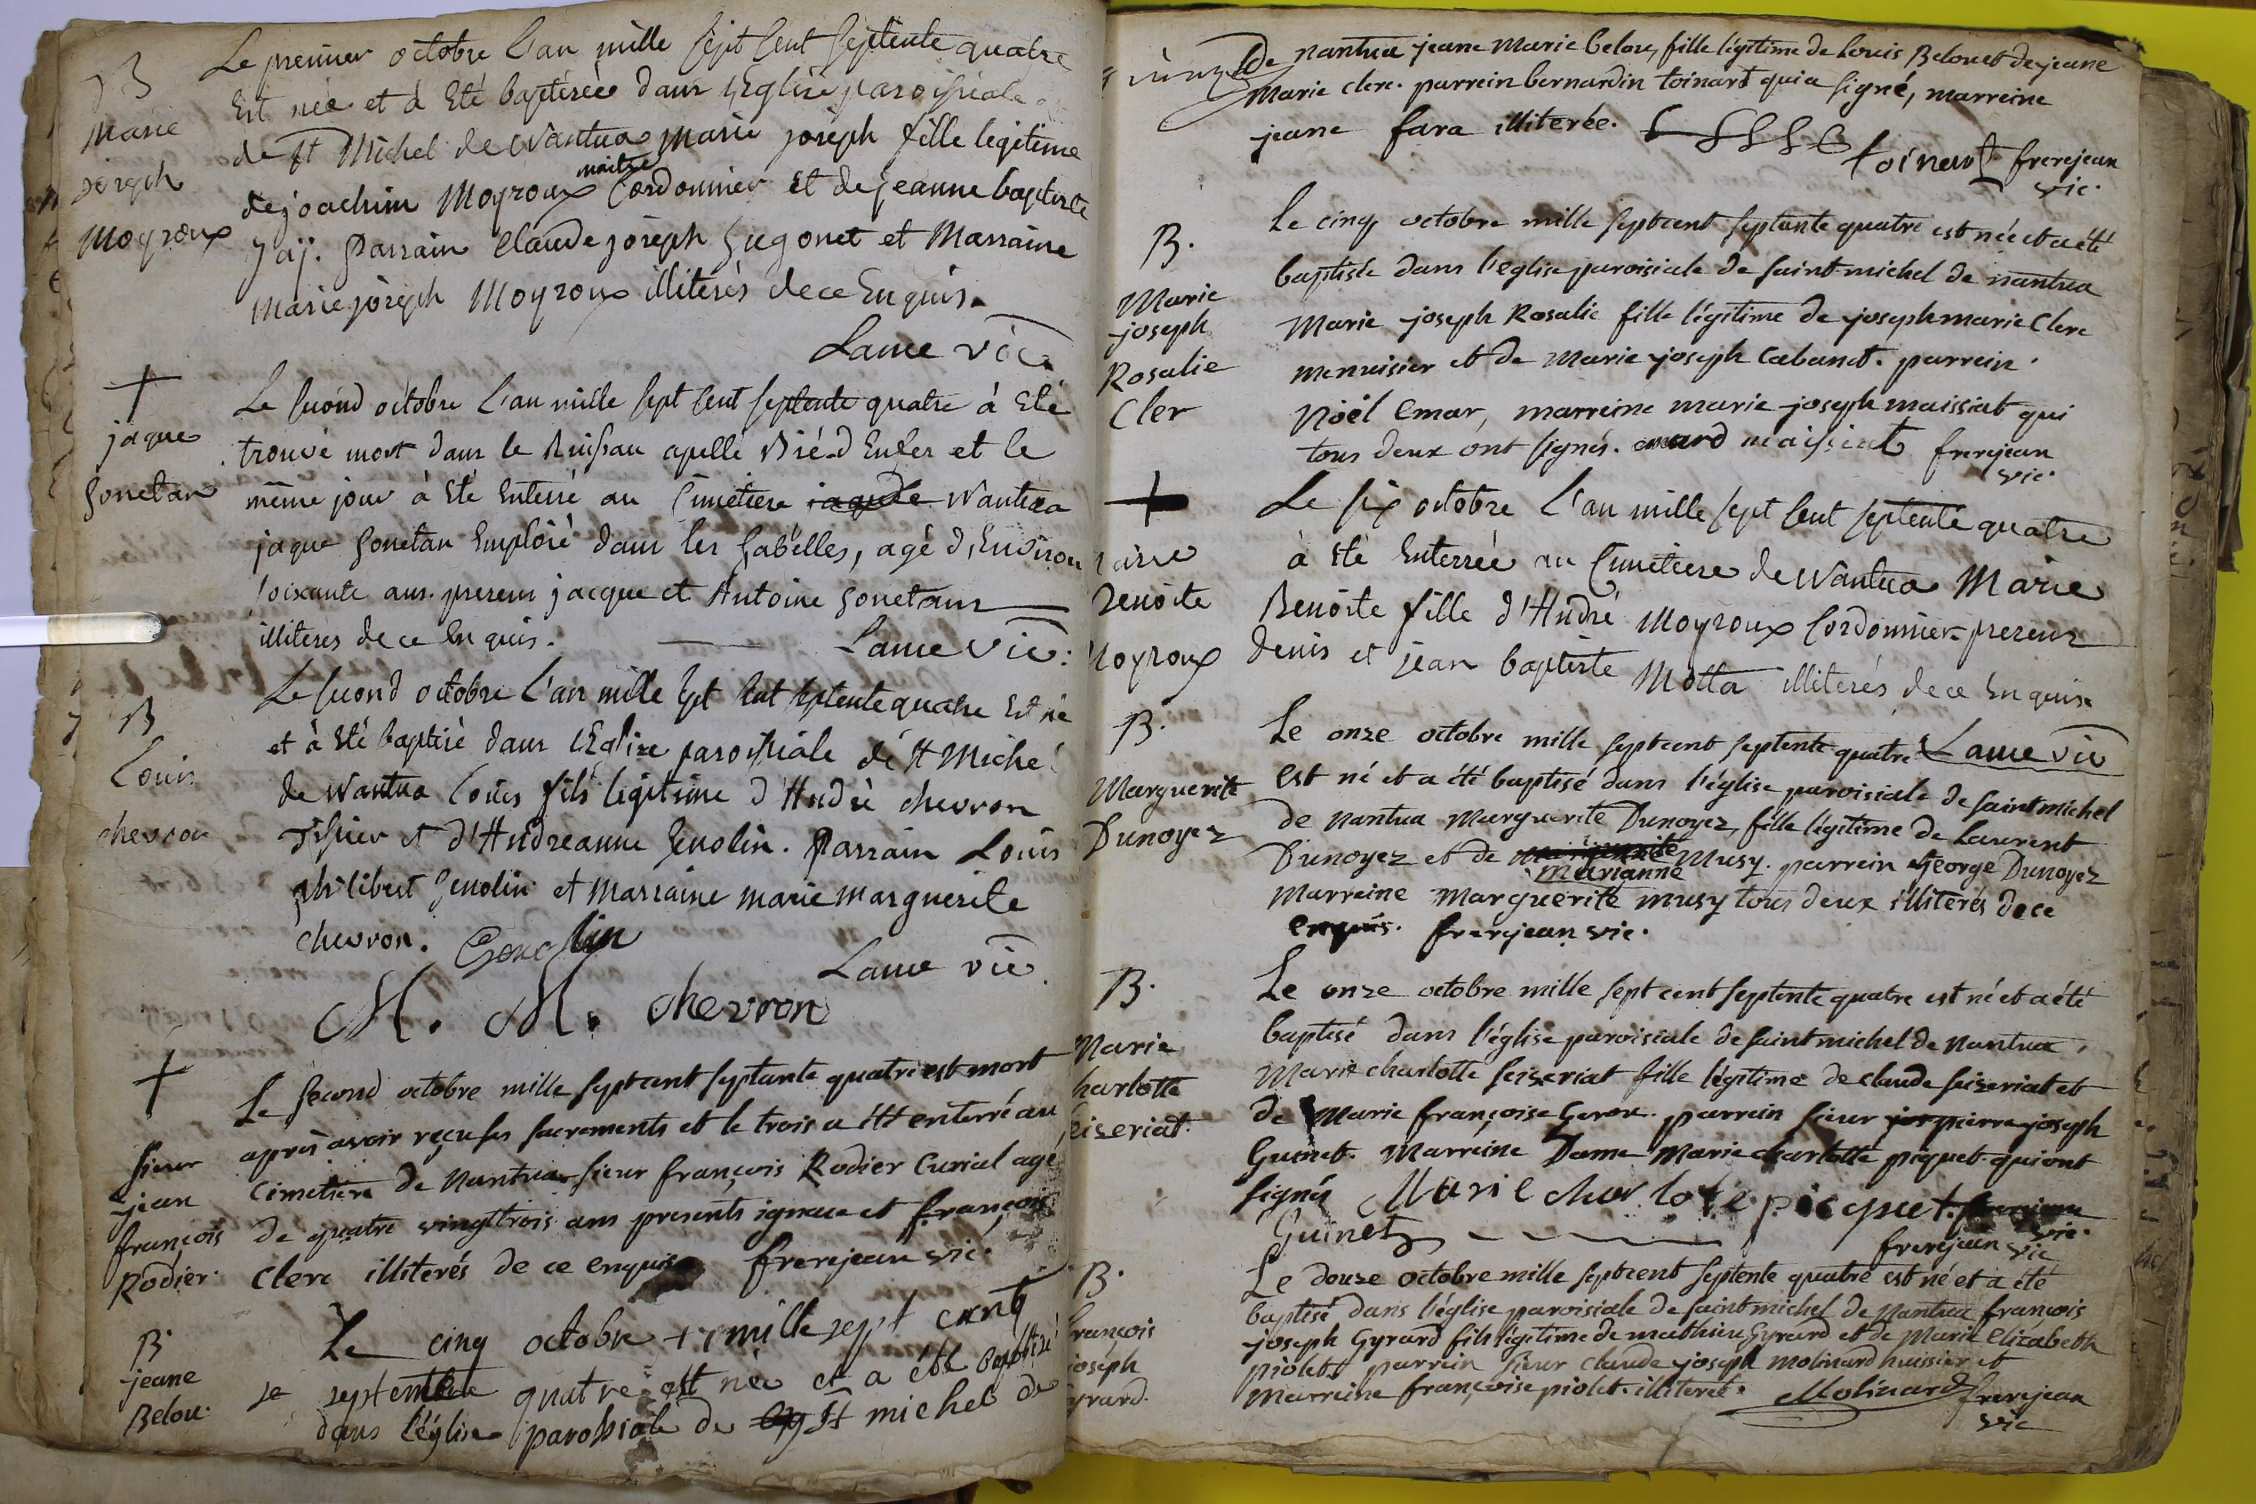 B
Marie
joseph
Moyroux
Le premier octobre L'an mille sept cent septente quatre
Est née et à Eté baptisée dans L'Eglise paroissiale
de st Michel de Nantua Marie joseph fille legitime
maitre
de joachim Moyroux Cordonnier Et de jeanne baptiste
jaÿ. Parrain Claude joseph Gugonet et Marraine
Marie joseph Moyroux illiterés de ce Enquis.
Lame vic.
+
jaque
Gonetan
Le second octobre L'an mille sept cent septente quatre à Eté
trouvé mort dans le Ruissau apellé Bié d'Enfer et le
même jour à Eté Enterré au Cimetiere jaque de Nantua
jaque Gonetan Emploié dans les gabelles, agé d'Environ
soixante ans. presens jacque et Antoine Gonetans
illiteres de ce Enquis.
Lame vic.
B
Louis
chevron
Le second octobre L'an mille sept cent septente quatre Est né
et à Eté baptisé dans L'Eglise paroissiale de st Michel
de Nantua Louis fils legitime d'André chevron
Tissier et d'Andreanne Genolin. Parrain Louis
philibert Genolin et Marraine marie marguerite
chevron. Genolin
Lame vic.
M. M. chevron
+
sieur
jean
françois
Rodier.
Le second octobre mille septcent septante quatre est mort
aprés avoir reçu ses sacrements et le trois a été enterré au
cimetière de Nantua sieur françois Rodier Curial agé
de quatre vingttrois ans presents ignace et françois
Clerc illiterés de ce enquis frerejean vic.
B
jeane
Belou.
Le cinq octobre mille sept cent
septente quatre est née et a été baptisé
dans l'église paroissiale de st michel de
de nantua jeane Marie belou, fille légitime de Louis Belou et de jeane
Marie clerc. parrein bernardin toinart qui a signé, marreine
jeane fara illiterée.
toinart frerejean
vic.
B.
Marie
joseph
Rosalie
Cler
Le cinq octobre mille septcent septante quatre est née et a été
baptisée dans l'eglise paroisiale de saint michel de nantua
Marie joseph Rosalie fille légitime de joseph marie Clerc
menuisier et de Marie joseph Cabanet. parrein
Nöël Emar, marreine marie joseph maissiat qui
tous deux ont signés. emard maissiat frerejean
vic.
+
Marie
Benoite
Moyroux
Le six octobre L'an mille sept cent septente quatre
à Eté Enterrée au Cimetiere de Nantua Marie
Benoite fille d'André Moyroux Cordonnier presens
denis et jean baptiste Motta illiterés de ce Enquis.
Lame vic
B.
Marguerite
Dunoyez
Le onze octobre mille septcent septente quatre
est né et a été baptisé dans l'église paroisiale de saint michel
de nantua Marguerite Dunoyez, fille légitime de Laurent
Dunoyez et de Musy. parrein George Dunoyez
Marianne
Marreine Marguerite musy tous deux illiterés de ce
enquis. frerejean vic.
B.
Marie
charlotte
seizeriat.
Le onze octobre mille sept cent septente quatre est né et a été
baptisé dans l'église paroisiale de saint michel de Nantua
Marie charlotte seizeriat fille légitime de claude seizeriat et
de Marie françoise parrein sieur pierre joseph
Guinet. Marreine Dame Marie charlotte piquet qui ont
signés Marie charlote picquet.
vic.
Guinet
frerejean vic
B.
françois
joséph
gyrard.
Le douze octobre mille septcent septente quatre est né et a été
baptisé dans l'église paroisiale de saint michel de Nantua françois
joseph Gyrard fils légitime de mathieu Gyrard et de Marie Elizabeth
piolet parrein sieur claude joseph molinard huissier et
Marreine françoise piolet. illiterée. Molinard frerejean
vic